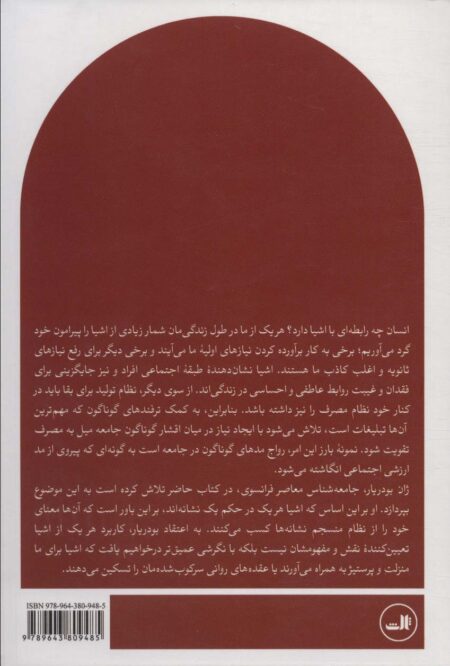 انسان چه رابطه‌ای با اشیا دارد؟ هریک از ما در طول زندگی‌مان شمار زیادی از اشیا را پیرامون خود
گرد می‌آوریم؛ برخی به کار برآورده کردن نیازهای اولیهٔ ما می‌آیند و برخی دیگر برای رفع نیازهای
ثانویه و اغلب کاذب ما هستند. اشیا نشان‌دهندهٔ طبقهٔ اجتماعی افراد و نیز جایگزینی برای
فقدان و غیبت روابط عاطفی و احساسی در زندگی‌اند. از سوی دیگر، نظام تولید برای بقا باید در
کنار خود نظام مصرف را نیز داشته باشد. بنابراین، به کمک ترفندهای گوناگون که مهم‌ترین
آن‌ها تبلیغات است، تلاش می‌شود با ایجاد نیاز در میان اقشار گوناگون جامعه میل به مصرف
تقویت شود. نمونهٔ بارز این امر، رواج مدهای گوناگون در جامعه است به گونه‌ای که پیروی از مد
ارزشی اجتماعی انگاشته می‌شود.
ژان بودریار، جامعه‌شناس معاصر فرانسوی، در کتاب حاضر تلاش کرده است به این موضوع
بپردازد. او بر این اساس که اشیا هریک در حکم یک نشانه‌اند، بر این باور است که آن‌ها معنای
خود را از نظام منسجم نشانه‌ها کسب می‌کنند. به اعتقاد بودریار، کاربرد هر یک از اشیا
تعیین‌کنندهٔ نقش و مفهومشان نیست بلکه با نگرشی عمیق‌تر درخواهیم یافت که اشیا برای ما
منزلت و پرستیژ به همراه می‌آورند یا عقده‌های روانی سرکوب‌شده‌مان را تسکین می‌دهند.
ISBN 978-964-380-948-5
9 789643 809485
ثالث